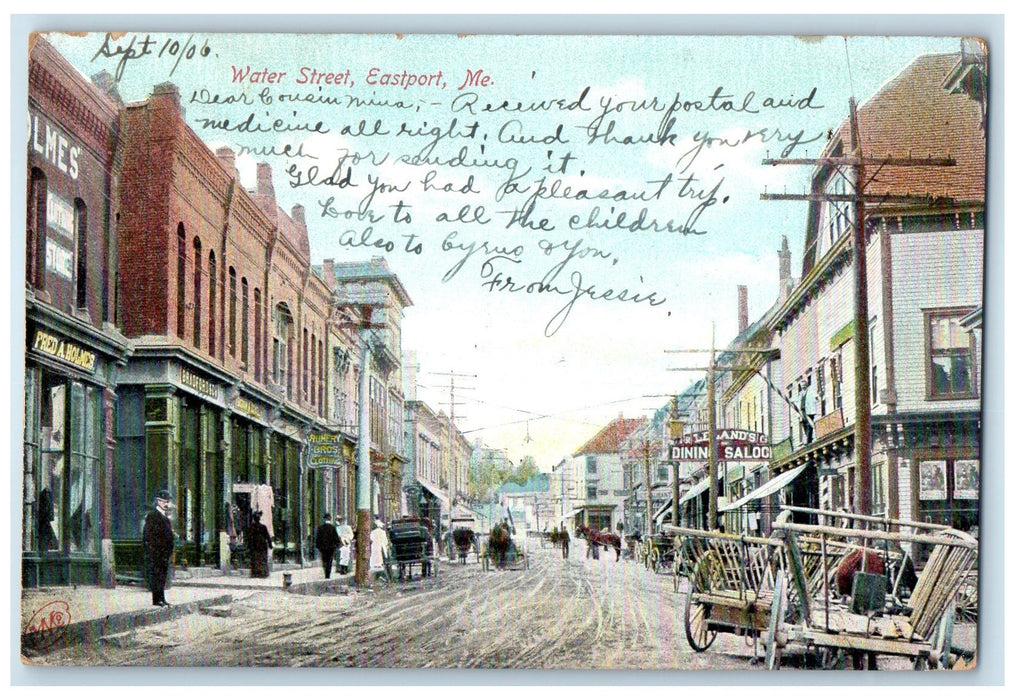 Sept 10/06.
Water Street, Eastport, Me.
Dear Cousin Mina; - Received your postal and
medicine all right. And thank you very
much for sending it.
Glad you had a pleasant trip.
Love to all the children
Also to Cyrus & You.
From Jessie.
OLMES'
STORE
FRED A. HOLMES
BROS.
CLOTHING
LELAND'S
DINING SALOO